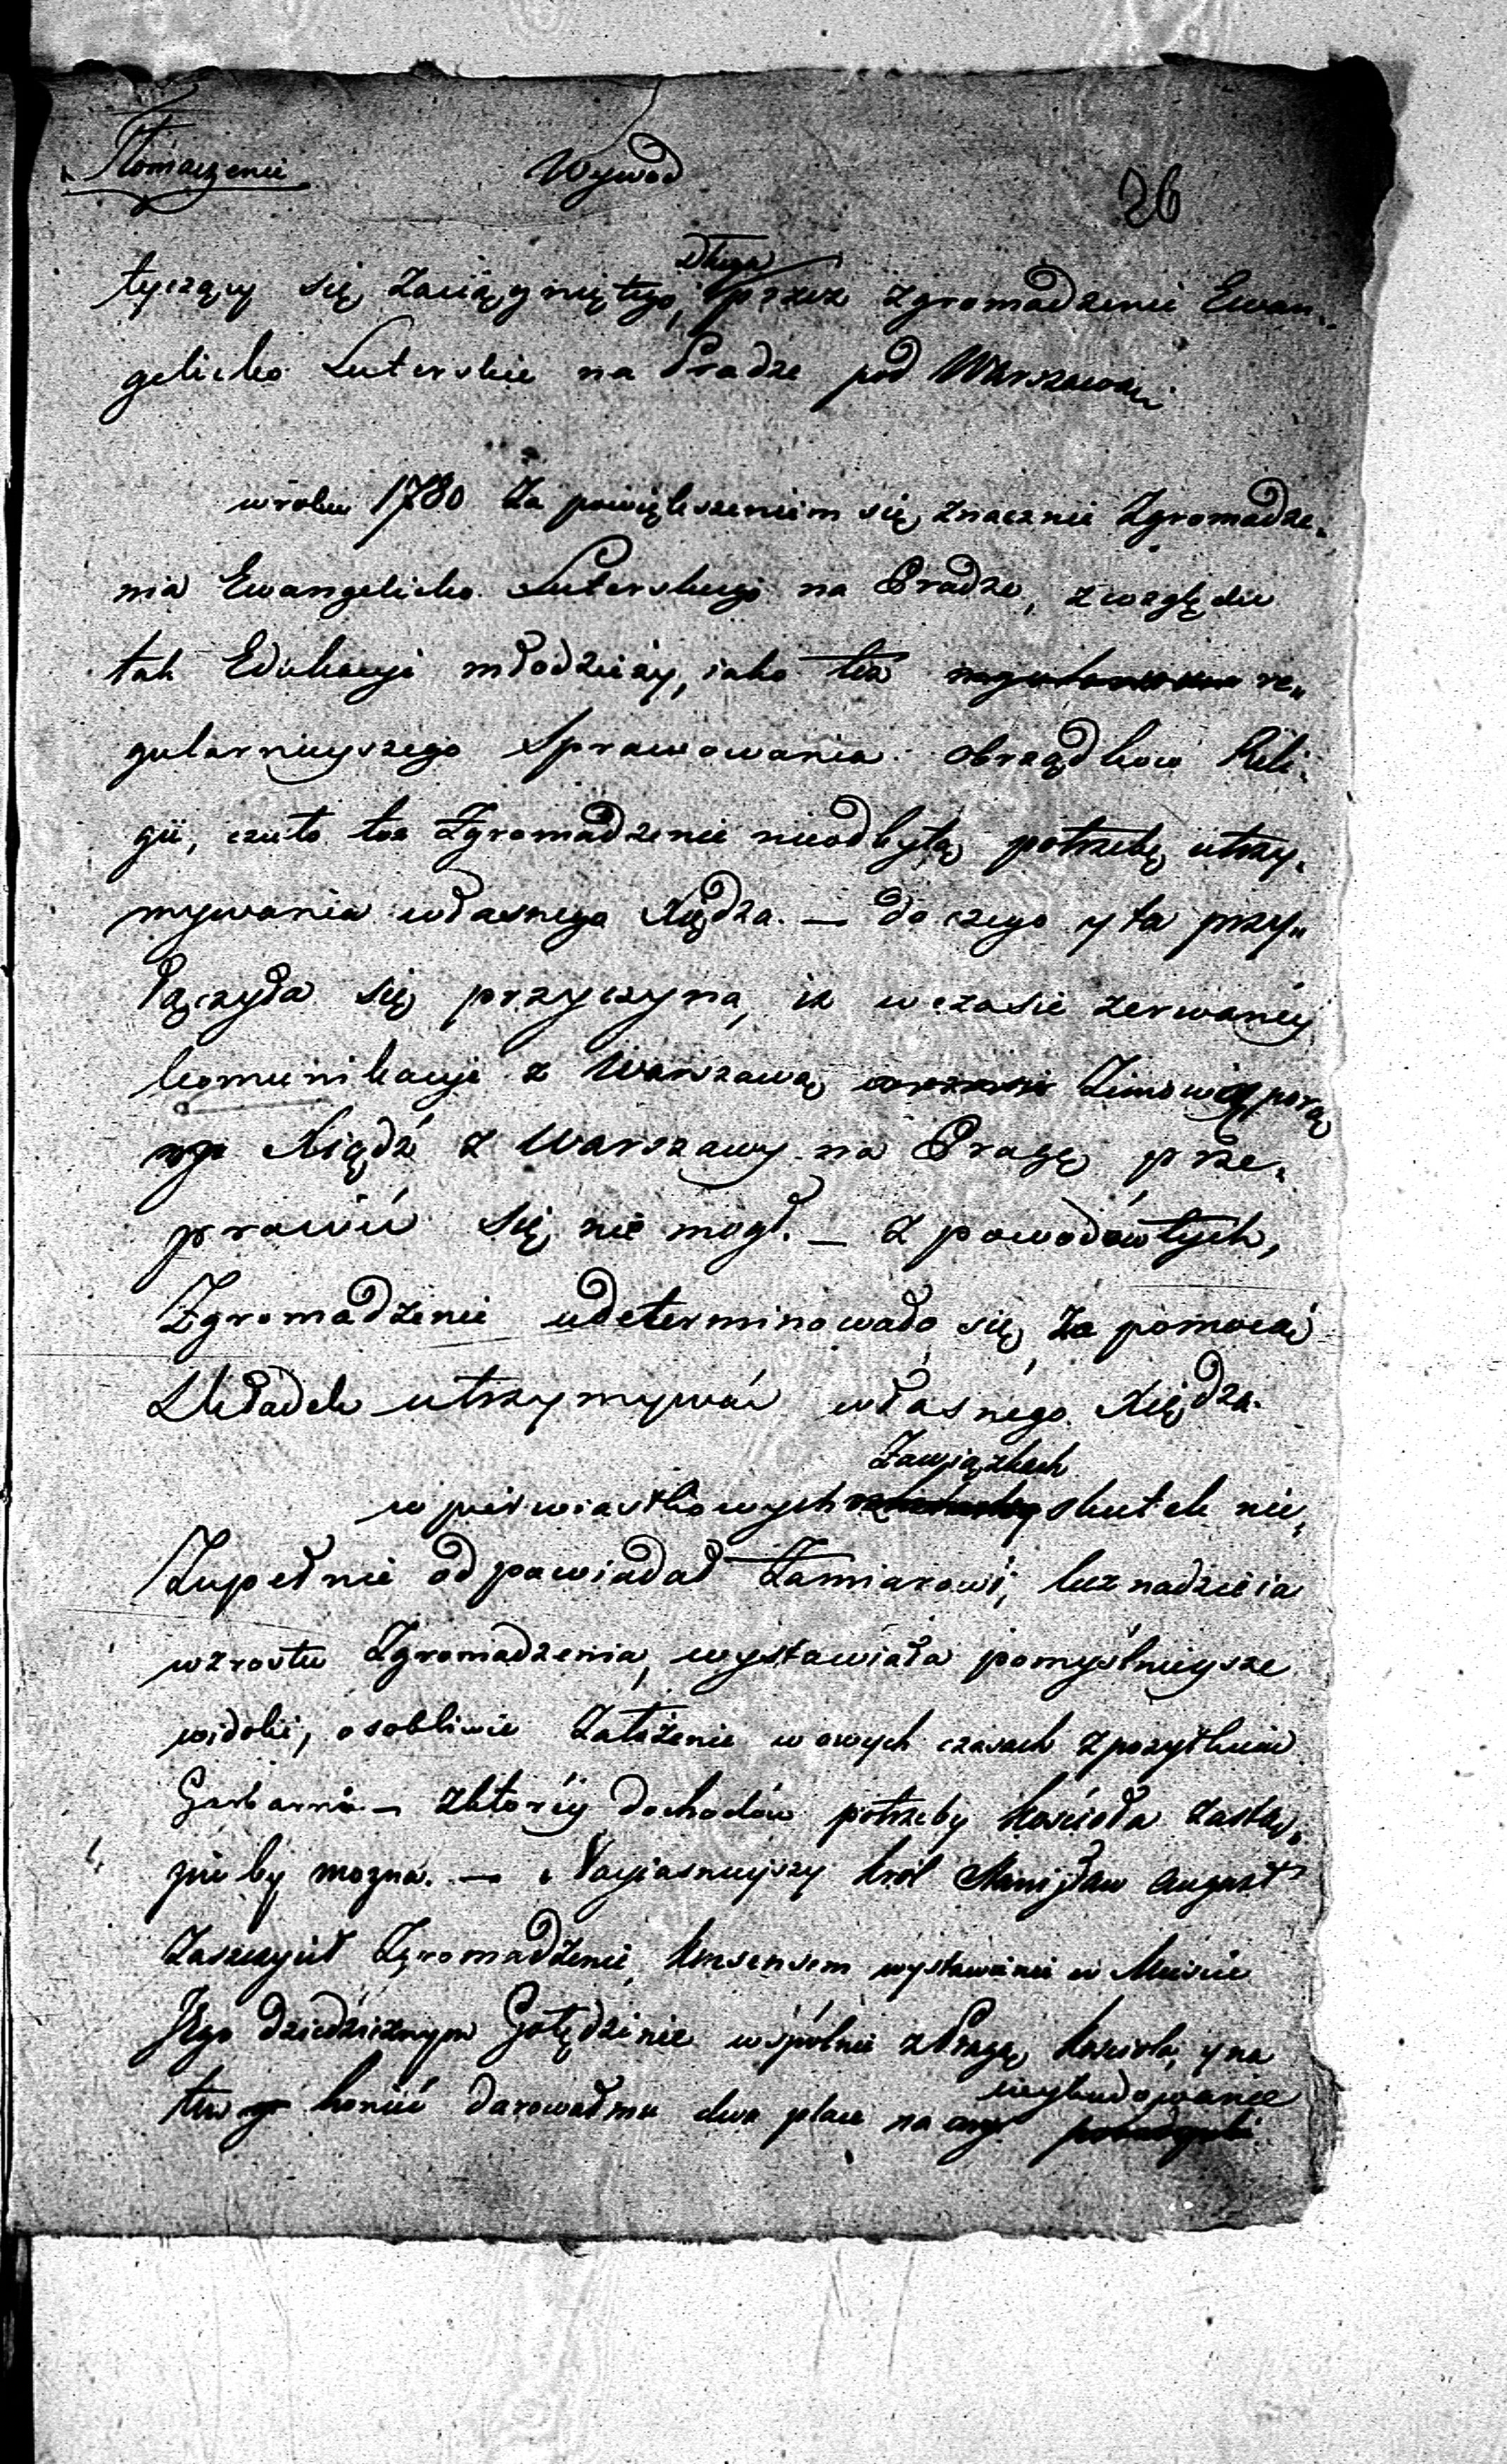 Tłomaczenie Wywod 26
Długu
tyczący się Zaciągniętego, przez Zgromadzenie Ewan„
gelicko Luterskie na Pradze pod Warszawą
w roku 1780 Za powiększeniem się znacznie Zgromadze„
nia Ewangelicko Luterskiego na Pradze, z względu
tak Edukacyi młodzieży, iako też re„
gularnieyszego Sprawowania obrządkow Reli„
gii, czuło toż Zgromadzenie nieodbytą potrzebę utrzy„
mywania własnego Xiędza. — do czego y ta przy„
łączyła się przyczyna, iż w czasie zerwaney
komunikacyi z Warszawą Zimową porą
Xiądz z Warszawy na Pragę prze„
prawić się nie mogł. — z powodów tych,
Zgromadzenie udeterminowało się, za pomocą
Składek utrzymywać własnego Xiędza.
Zawiązkach
w pierwiastkowych skutek nie„
Zupełnie odpowiadał Zamiarowi, lecz nadzieia
wzrostu Zgromadzenia, wystawiała pomyślnieysze
widoki, osobliwie Założenie w owych czasach z pożytkiem
Garbarni — z ktorey dochodów potrzeby kościoła zastą„
pić by można. — Nayiasnieyszy Król Stanisław August
Zaszczycił Zgromadzenie, konsensem wystawienia w Mieście
Jego dziedzicznym Golędzinie wspólnie z Pragą kościoła, y na
wybudowanie
ten koniec darował mu dwa place na